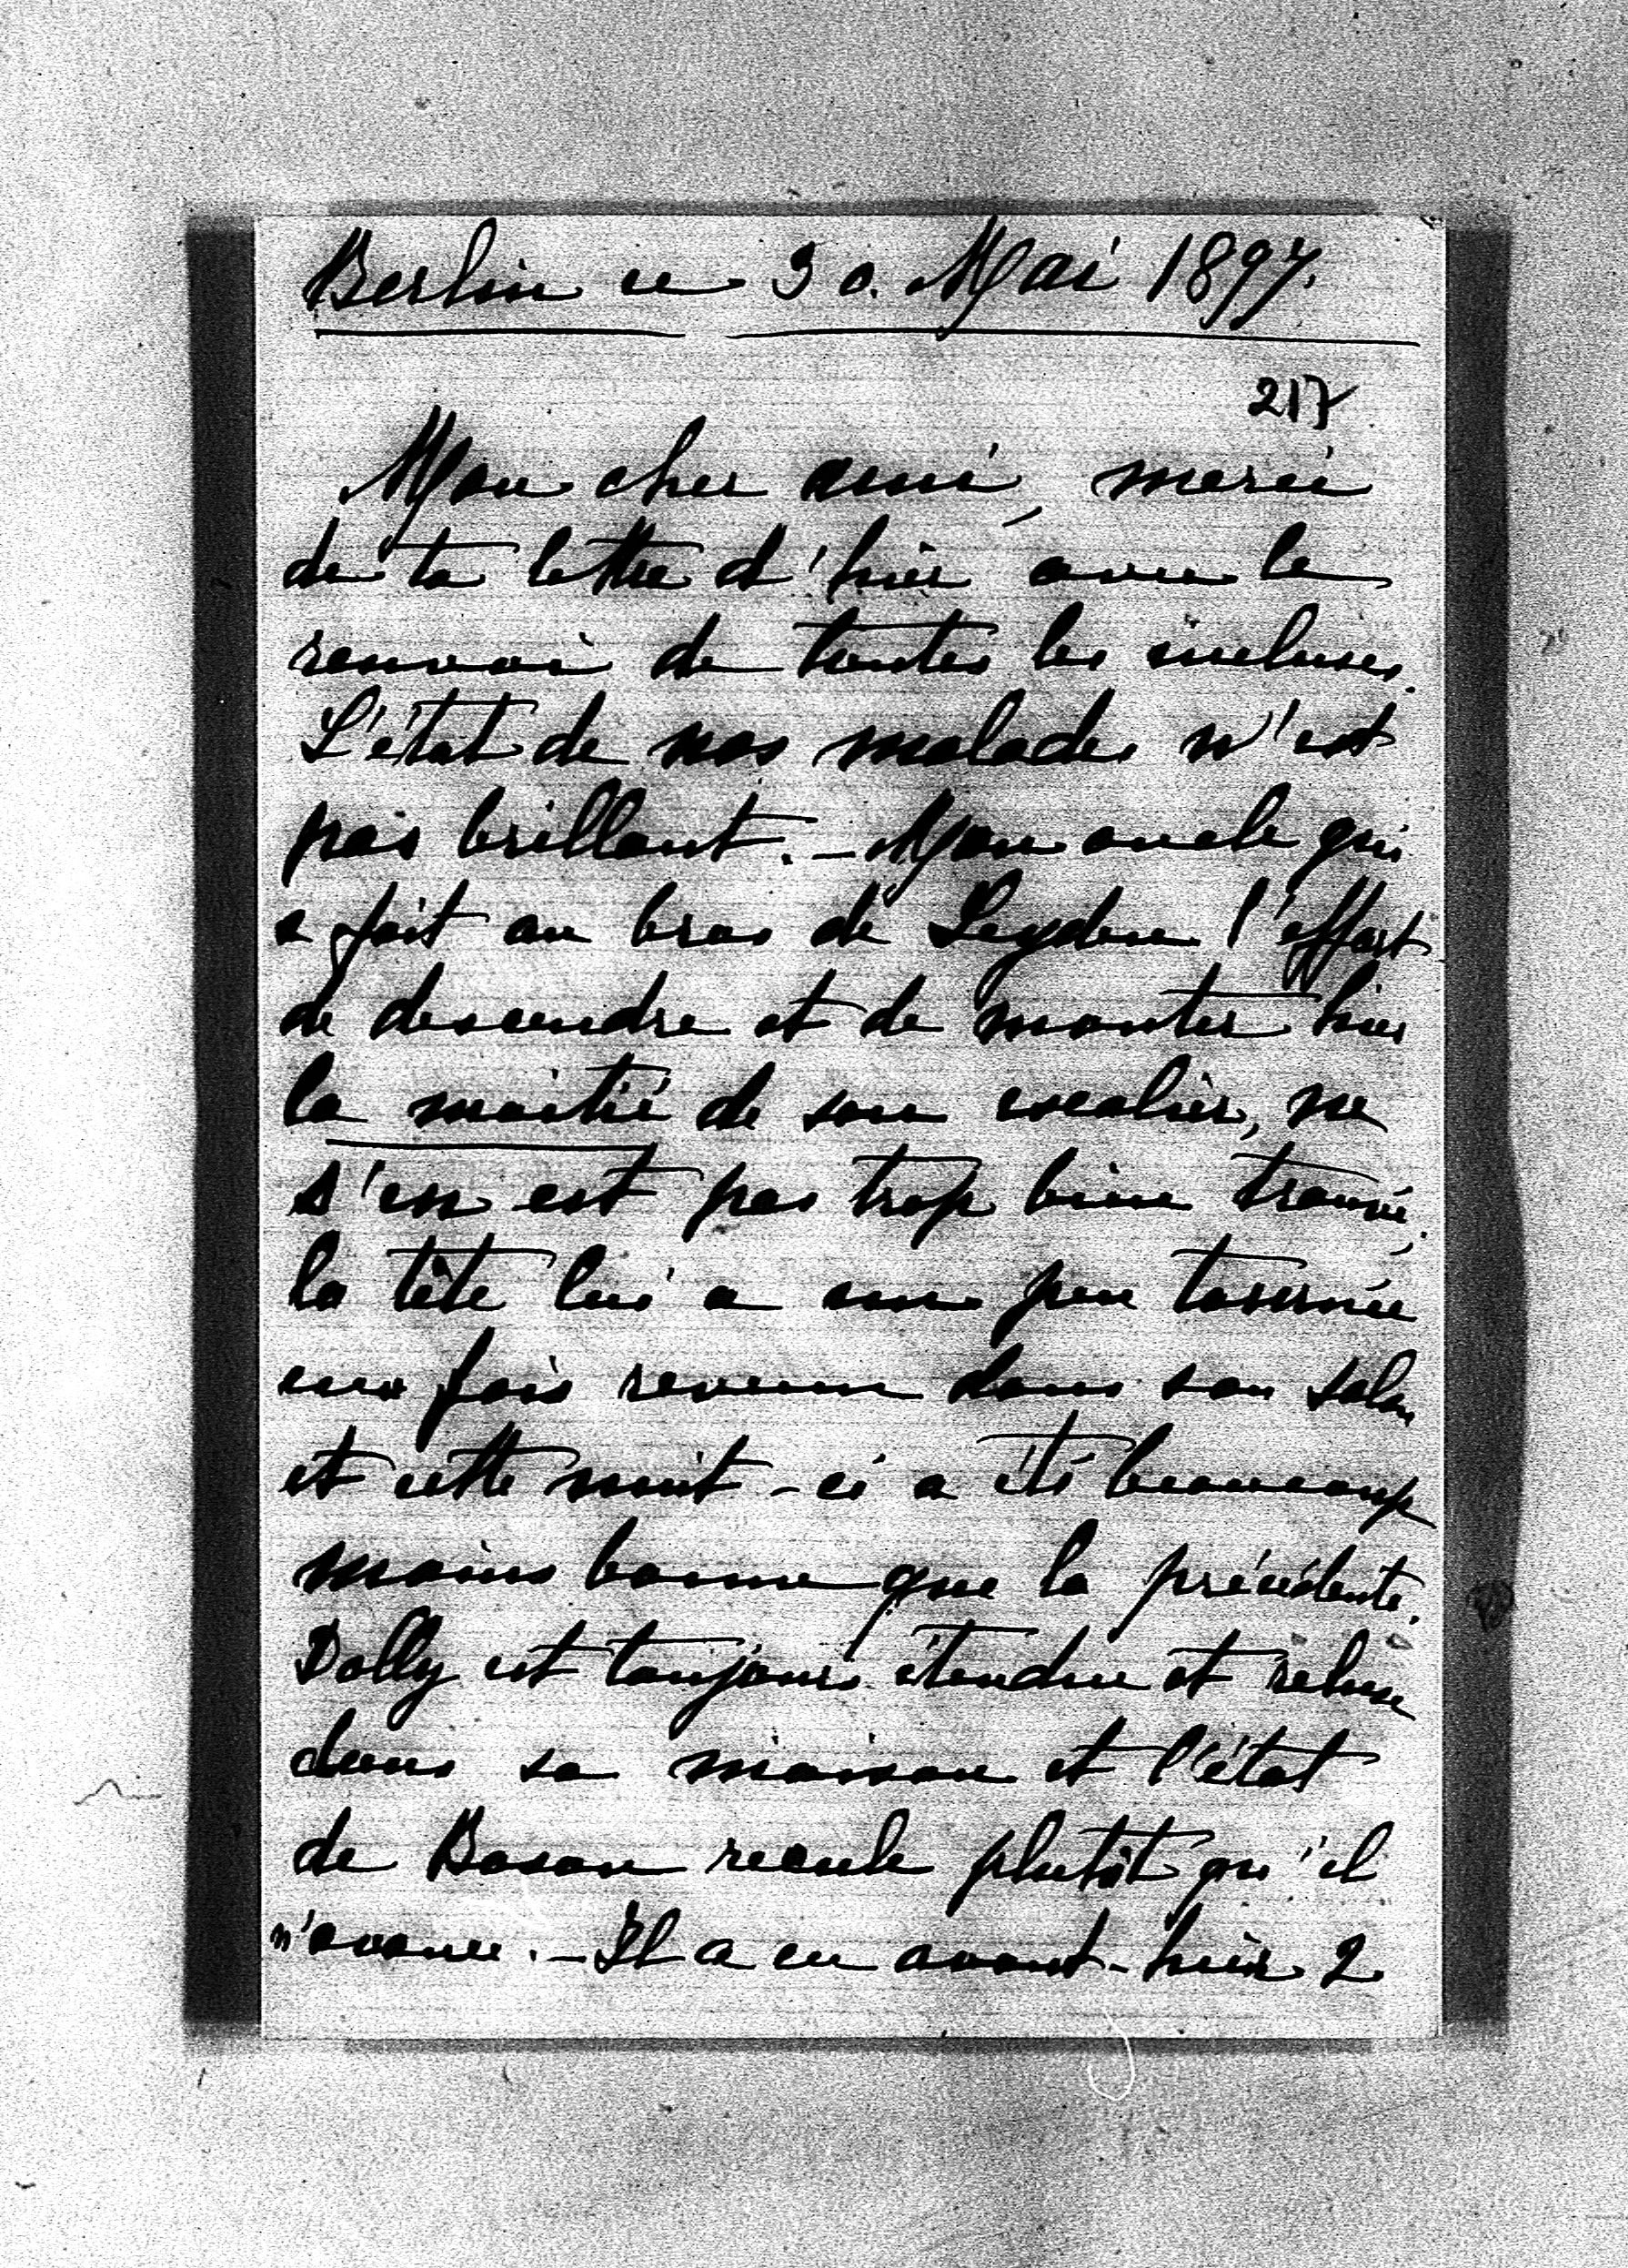 Berlin ce 30. Mai 1897.
217
Mon cher ami, merci
de ta lettre d'hier avec le
renvoi de toutes les incluses.
L'état de nos malades n'est
pas brillant. – Mon oncle qui
a fait au bras de Leyden l'effort
de descendre et de monter hier
la moitié de son escalier, ne
s'en est pas trop bien trouvé,
la tête lui a un peu tournée
une fois revenu dans son salon
et cette nuit-ci a été beaucoup
moins bonne que la précédente.
Dolly est toujours étendue et recluse
dans sa maison et l'état
de Boson recule plutôt qu'il
n'avance. – Il a eu avant-hier 2